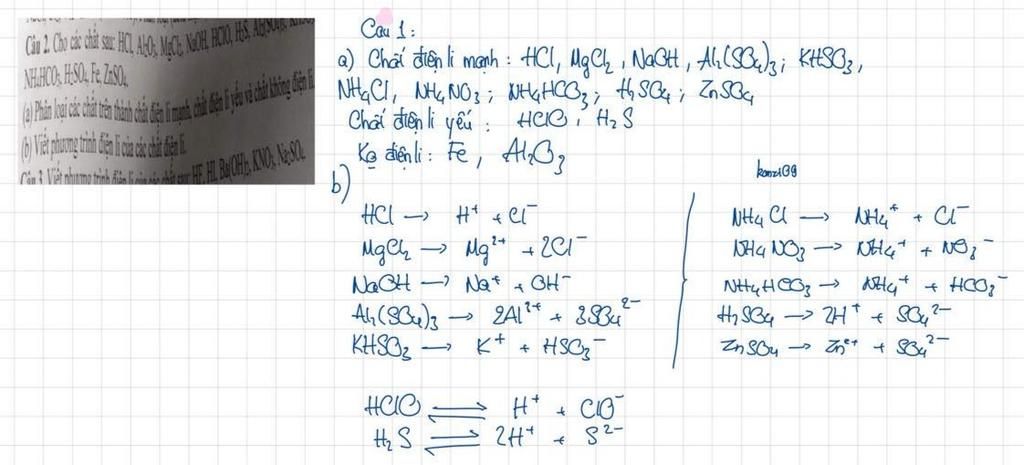 Câu 2. Cho các chất sau: HCl, Al₂O₃, MgCl₂, NaOH, HClO, H₂S,
NH₄HCO₃, H₂SO₄, Fe, ZnSO₄.
(a) Phân loại các chất trên thành chất điện li mạnh, chất điện li yếu và chất không điện li.
(b) Viết phương trình điện li của các chất điện li.
Câu 3. Viết phương trình điện li của các chất sau: HF, HI, Ba(OH)₂, KNO₃, Na₂SO₄
Câu 1:
a) Chất điện li mạnh: HCl, MgCl₂, NaOH, Al₂(SO₄)₃; KHSO₃,
NH₄Cl, NH₄NO₃; NH₄HCO₃; H₂SO₄; ZnSO₄
Chất điện li yếu: HClO, H₂S
Ko điện li: Fe, Al₂O₃
kanzi09
b)
HCl → H⁺ + Cl⁻
MgCl₂ → Mg²⁺ + 2Cl⁻
NaOH → Na⁺ + OH⁻
Al₂(SO₄)₃ → 2Al³⁺ + 3SO₄²⁻
KHSO₃ → K⁺ + HSO₃⁻
NH₄Cl → NH₄⁺ + Cl⁻
NH₄NO₃ → NH₄⁺ + NO₃⁻
NH₄HCO₃ → NH₄⁺ + HCO₃⁻
H₂SO₄ → 2H⁺ + SO₄²⁻
ZnSO₄ → Zn²⁺ + SO₄²⁻
HClO ⇌ H⁺ + ClO⁻
H₂S ⇌ 2H⁺ + S²⁻